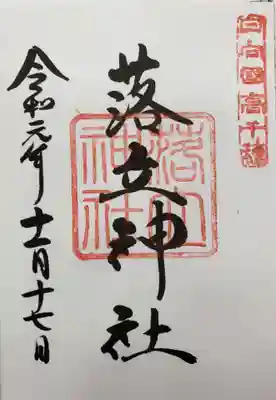 日向國高千穂
落立神社
落立神社
令和元年十一月十七日